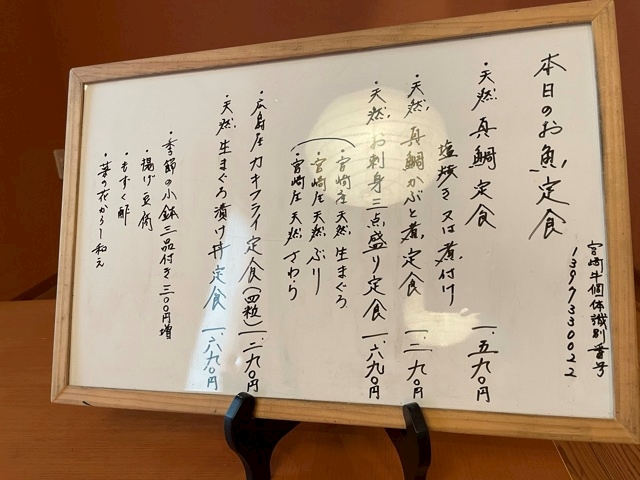 本日のお魚定食
宮崎牛個体識別番号
1397330022
・天然 真鯛 定食
塩焼き 又は 煮付け 一、五九〇円
・天然 真鯛かぶと煮 定食 一、二九〇円
・天然 お刺身 三点盛り定食 一、六九〇円
・宮崎産 天然 生まぐろ
・宮崎産 天然 ぶり
・宮崎産 天然 さわら
・広島産 カキフライ定食(四粒) 一、二九〇円
・天然 生まぐろ漬け丼定食 一、六九〇円
・季節の小鉢三品付き 三〇〇円増
・揚げ豆腐
・もずく酢
・菜の花からし和え